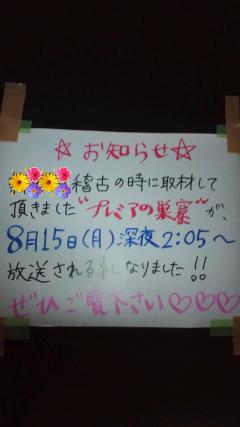 ☆お知らせ☆
稽古の時に取材して
頂きました"プレミアの巣窟"が、
8月15日(月)深夜2:05〜
放送される事になりました!!
ぜひご覧下さい♡♡♡